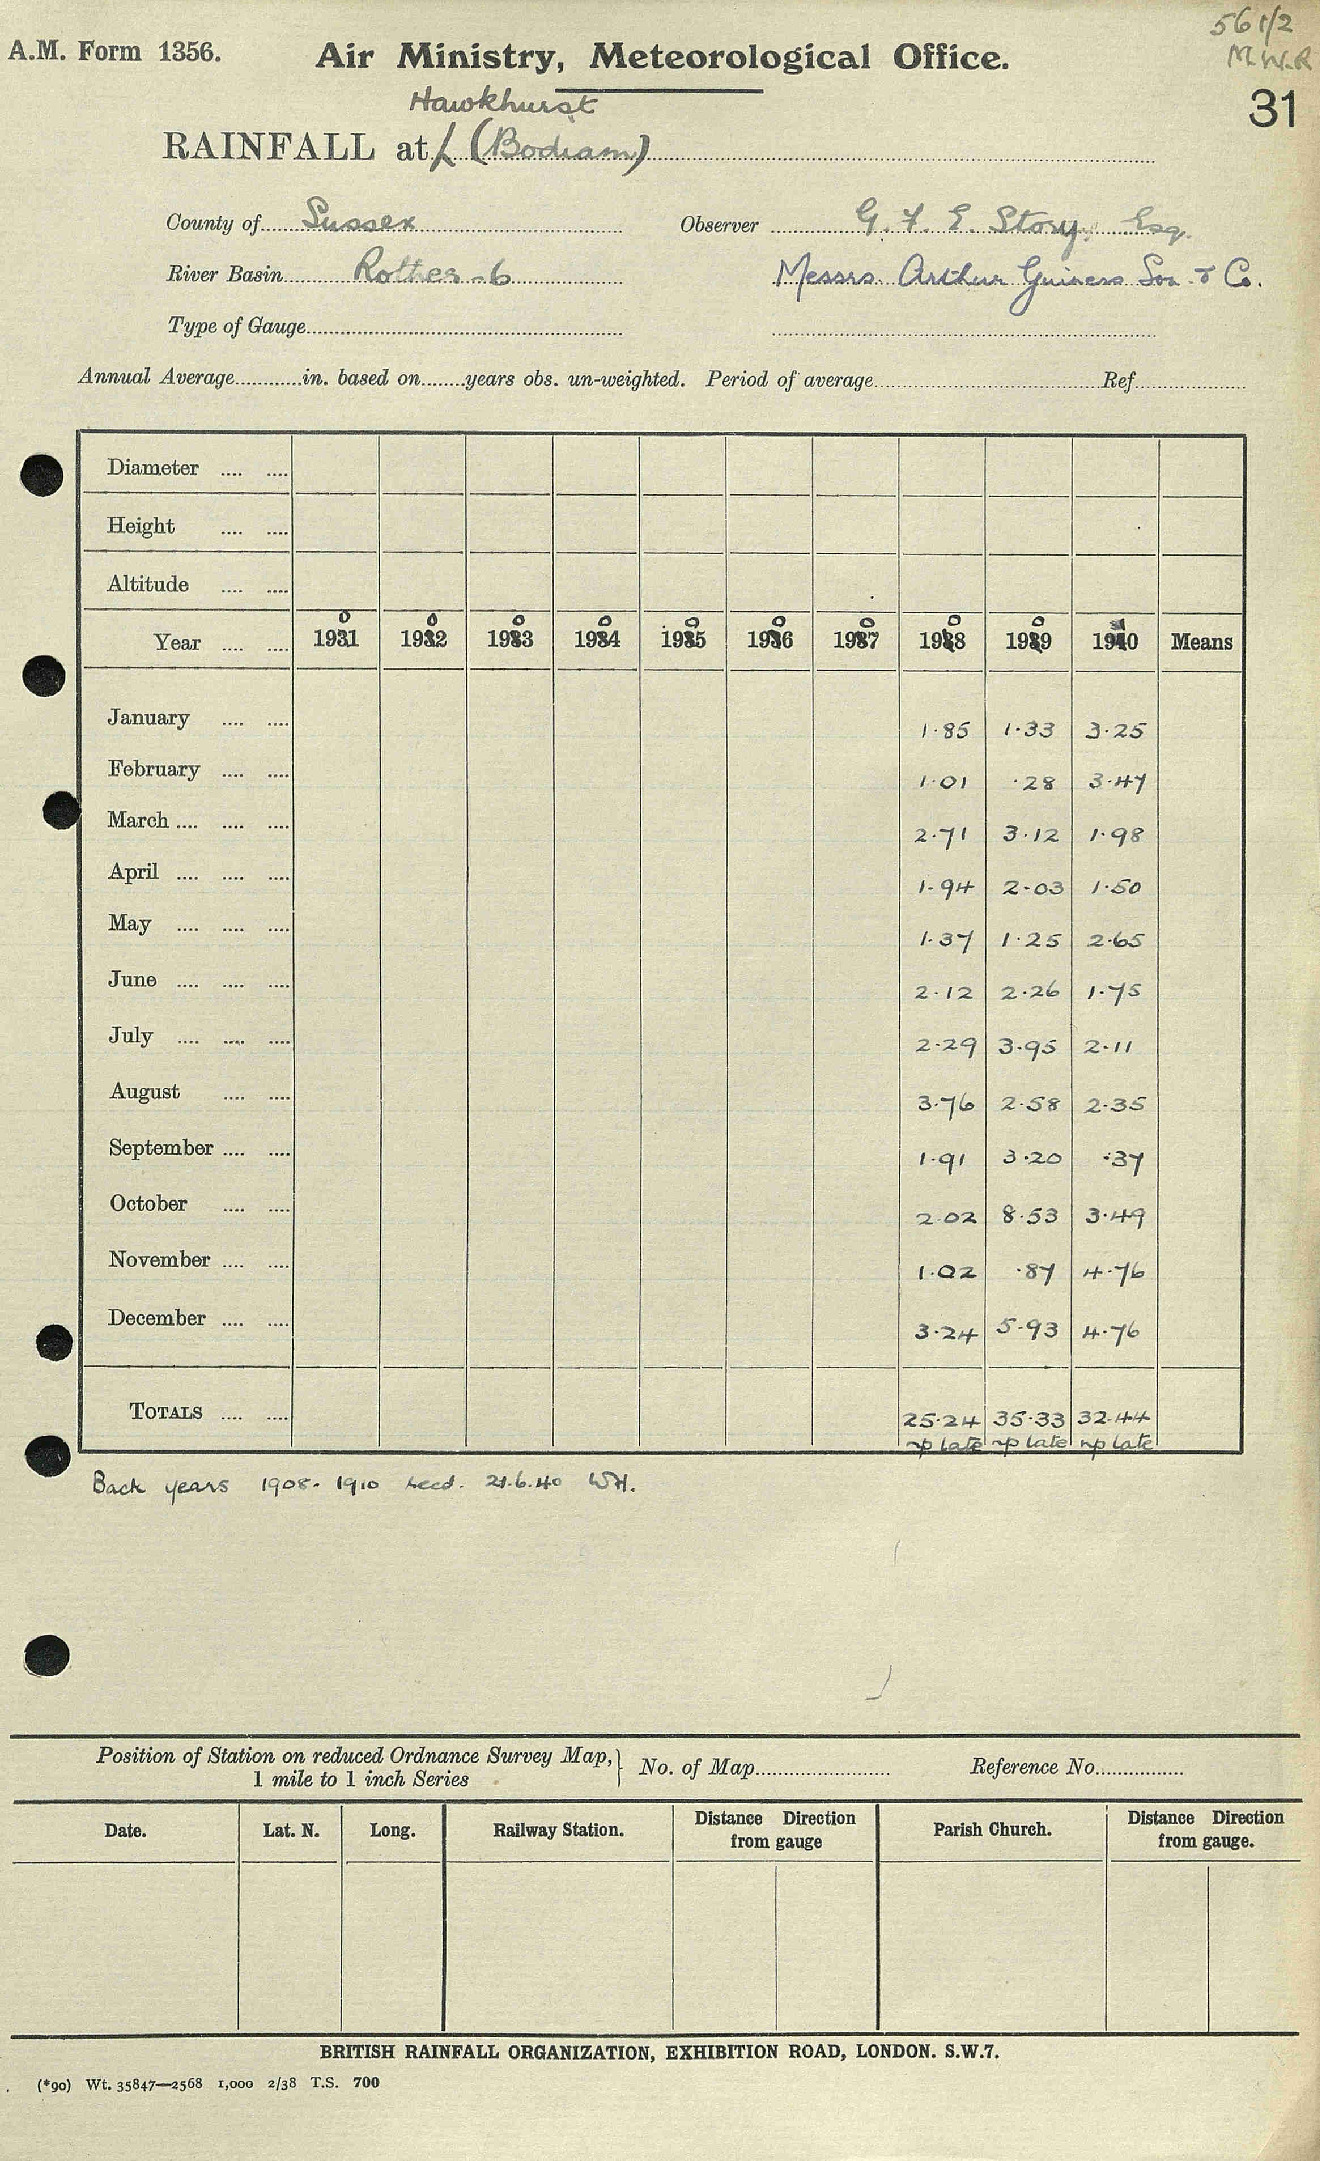 56 1/2
M.W.R
A.M. Form 1356. Air Ministry, Meteorological Office.
31
Hawkhurst
RAINFALL at (Bodiam)
County of Sussex Observer G. F. E. Story, Esq.
River Basin Rother - 6 Messrs. Arthur Guiness Son & Co.
Type of Gauge
Annual Average in. based on years obs. un-weighted. Period of average Ref
Diameter
Height
Altitude
0 0 0 0 0 0 0 0 0 1
Year 1931 1932 1933 1934 1935 1936 1937 1938 1939 1940 Means
January 1.85 1.33 3.25
February 1.01 .28 3.47
March 2.71 3.12 1.98
April 1.94 2.03 1.50
May 1.37 1.25 2.65
June 2.12 2.26 1.75
July 2.29 3.95 2.11
August 3.76 2.58 2.35
September 1.91 3.20 .37
October 2.02 8.53 3.49
November 1.02 .87 4.76
December 3.24 5.93 4.76
TOTALS 25.24 35.33 32.44
late late late
Back years 1908-1910 recd. 21.6.40 WH.
Position of Station on reduced Ordnance Survey Map,} No. of Map Reference No.
1 mile to 1 inch Series
Date. Lat. N. Long. Railway Station. Distance Direction from gauge Parish Church. Distance Direction from gauge.
BRITISH RAINFALL ORGANIZATION, EXHIBITION ROAD, LONDON. S.W.7.
(*90) Wt. 35847—2568 1,000 2/38 T.S. 700